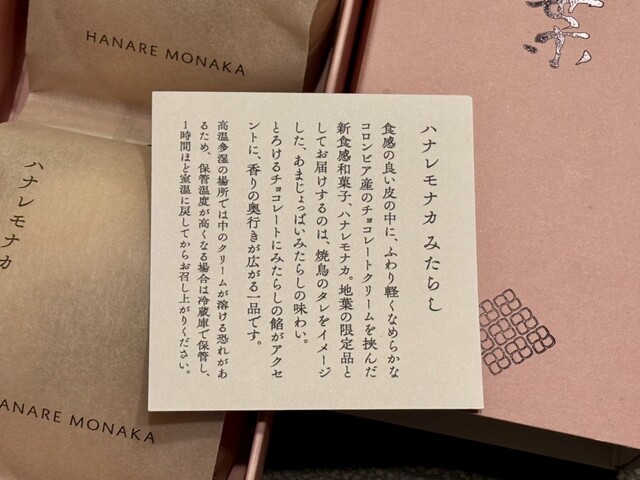 HANARE MONAKA
ハナレモナカ
HANARE MONAKA
ハナレモナカ みたらし
食感の良い皮の中に、ふわり軽くなめらかな
コロンビア産のチョコレートクリームを挟んだ
新食感和菓子、ハナレモナカ。地葉の限定品と
してお届けするのは、焼鳥のタレをイメージ
した、あまじょっぱいみたらしの味わい。
とろけるチョコレートにみたらしの餡がアクセ
ントに、香りの奥行きが広がる一品です。
高温多湿の場所では中のクリームが溶ける恐れがあ
るため、保管温度が高くなる場合は冷蔵庫で保管し、
1時間ほど室温に戻してからお召し上がりください。